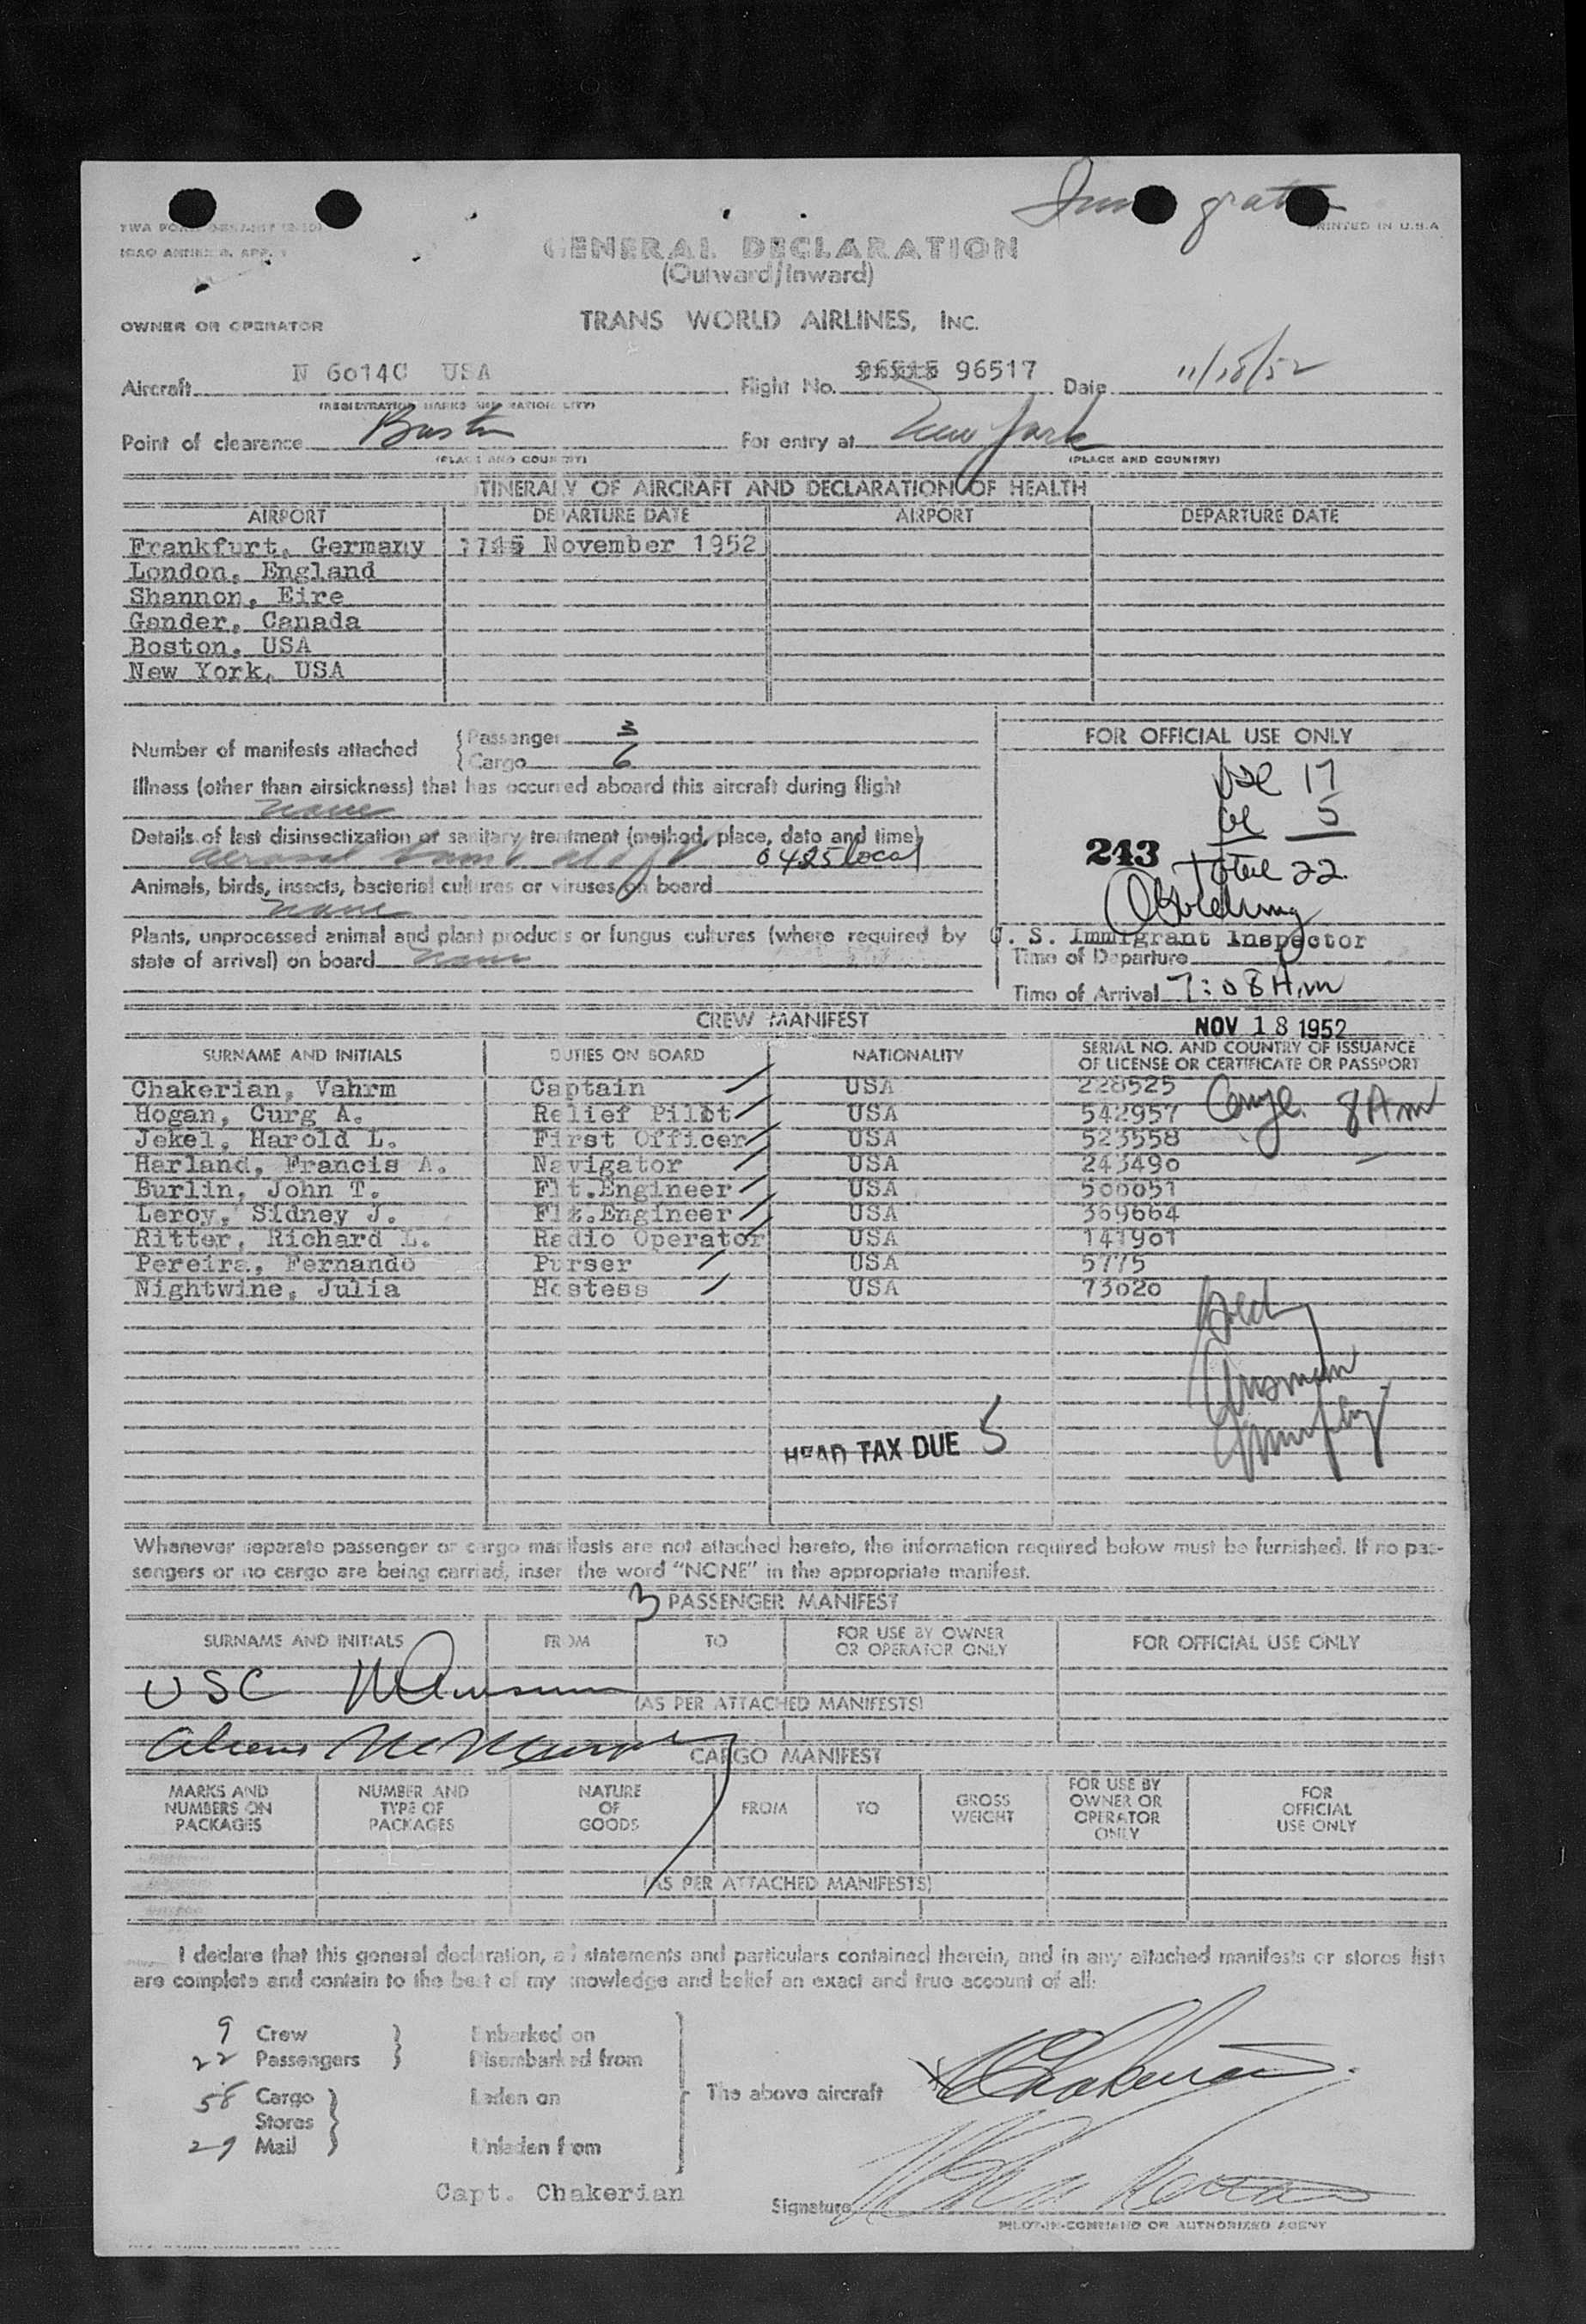 PRINTED IN U.S.A.
GENERAL DECLARATION
(Outward/Inward)
OWNER OR OPERATOR TRANS WORLD AIRLINES, INC.
Aircraft N 6014C USA Flight No. 96517 Date 11/18/52
(REGISTRATION MARKS AND NATIONALITY)
Point of clearance Boston For entry at New York
(PLACE AND COUNTRY) (PLACE AND COUNTRY)
ITINERARY OF AIRCRAFT AND DECLARATION OF HEALTH
AIRPORT DEPARTURE DATE AIRPORT DEPARTURE DATE
Frankfurt, Germany November 1952
London, England
Shannon, Eire
Gander, Canada
Boston, USA
New York, USA
Number of manifests attached Passenger 3
Cargo 6
FOR OFFICIAL USE ONLY
Illness (other than airsickness) that has occurred aboard this aircraft during flight
none
USC 17
5
Details of last disinsectization or sanitary treatment (method, place, date and time)
Aerosol bomb aloft 0425 local
243 Total 22
Animals, birds, insects, bacterial cultures or viruses on board
none
Plants, unprocessed animal and plant products or fungus cultures (where required by
state of arrival) on board none
U. S. Immigrant Inspector
Time of Departure
Time of Arrival 7:08 A.m
CREW MANIFEST NOV 18 1952
SURNAME AND INITIALS DUTIES ON BOARD NATIONALITY SERIAL NO. AND COUNTRY OF ISSUANCE
OF LICENSE OR CERTIFICATE OR PASSPORT
Chakerian, Vahrm Captain USA 228525
Hogan, Curg A. Relief Pilot USA 542957 8 Am
Jekel, Harold L. First Officer USA 523558
Harland, Francis A. Navigator USA 243490
Burlin, John T. Flt.Engineer USA 500051
Leroy, Sidney J. Flt.Engineer USA 369664
Ritter, Richard L. Radio Operator USA 147901
Pereira, Fernando Purser USA 5775
Nightwine, Julia Hostess USA 73020
HEAD TAX DUE 5
Whenever separate passenger or cargo manifests are not attached hereto, the information required below must be furnished. If no pas-
sengers or no cargo are being carried, insert the word "NONE" in the appropriate manifest.
3 PASSENGER MANIFEST
SURNAME AND INITIALS FROM TO FOR USE BY OWNER
OR OPERATOR ONLY FOR OFFICIAL USE ONLY
USC
(AS PER ATTACHED MANIFESTS)
Aliens
CARGO MANIFEST
MARKS AND
NUMBERS ON
PACKAGES NUMBER AND
TYPE OF
PACKAGES NATURE
OF
GOODS FROM TO GROSS
WEIGHT FOR USE BY
OWNER OR
OPERATOR
ONLY FOR
OFFICIAL
USE ONLY
(AS PER ATTACHED MANIFESTS)
I declare that this general declaration, all statements and particulars contained therein, and in any attached manifests or stores lists
are complete and contain to the best of my knowledge and belief an exact and true account of all:
9 Crew Embarked on
22 Passengers Disembarked from
58 Cargo Laden on The above aircraft Chakerian
Stores
29 Mail Unladen from
Capt. Chakerian
Signature
PILOT-IN-COMMAND OR AUTHORIZED AGENT